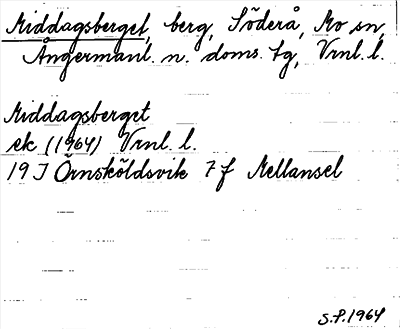 Middagsberget, berg, Söderå, Mo sn,
Ångermanl. n. doms. tg, Vrnl. l.
Middagsberget
ek (1964) Vrnl. l.
19 J Örnsköldsvik 7 f Mellansel
S.P. 1964